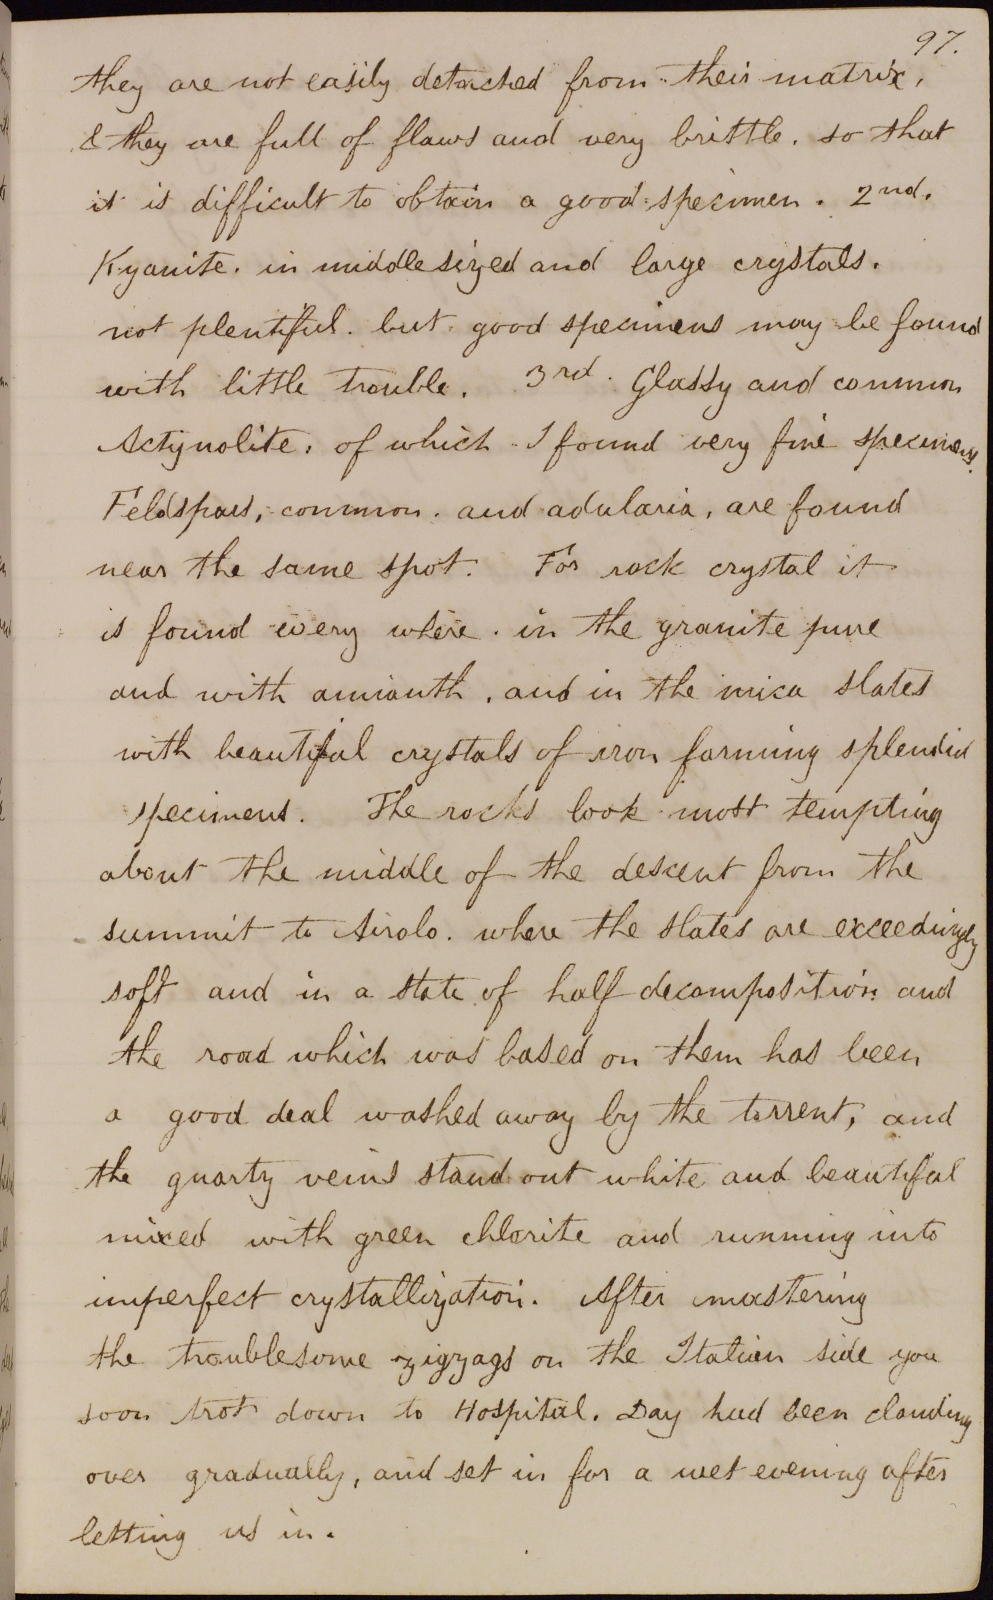 97.
they are not easily detached from their matrix,
& they are full of flaws and very brittle. so that
it is difficult to obtain a good specimen. 2nd.
Kyanite. in middle sized and large crystals.
not plentiful. but good specimens may be found
with little trouble. 3rd. Glassy and common
Actynolite, of which I found very fine specimens.
Feldspars, common. and adularia, are found
near the same spot. For rock crystal it
is found every where. in the granite pure
and with amianth, and in the mica slates
with beautiful crystals of iron forming splendid
specimens. The rocks look most tempting
about the middle of the descent from the
summit to Airolo. where the slates are exceedingly
soft and in a state of half decomposition and
the road which was based on them has been
a good deal washed away by the torrent, and
the quartz veins stand out white and beautiful
mixed with green chlorite and running into
imperfect crystallization. After mastering
the troublesome zigzags on the Italian side you
soon trot down to Hospital. Day had been clouding
over gradually, and set in for a wet evening after
letting us in.